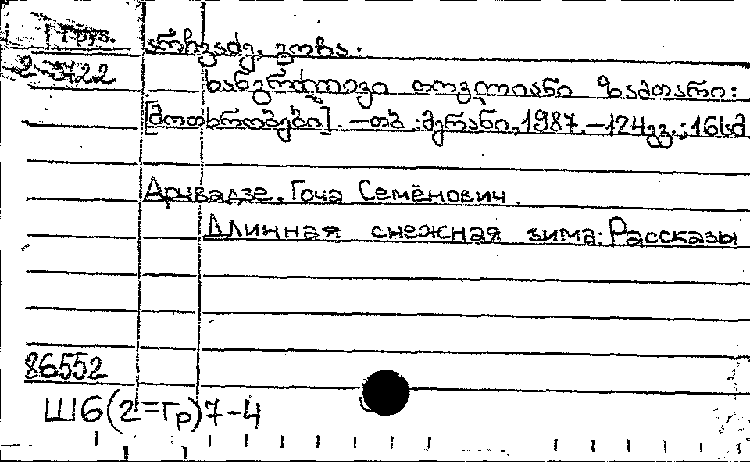 Груз.
არჩვაძე, გოჩა.
2-3722
ხანგრძლივი თოვლიანი ზამთარი:
[მოთხრობები]. –თბ.:მერანი,1987.–124გვ.;16სმ
Арчвадзе, Гоча Семёнович.
Длинная снежная зима: Рассказы
86552
Ш6(2=Гр)7-4